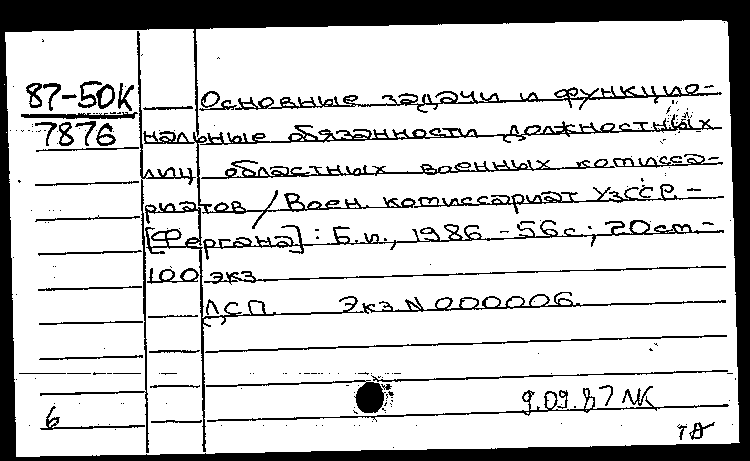 87-50К Основные задачи и функцио-
7876 нальные обязанности должностных
лиц областных военных комисса-
риатов / Воен. комиссариат УзССР. -
[Фергана]: Б.и., 1986. - 56с; 20см. -
100 экз.
ДСП. Экз N 000006.
9.09.87 NK
6